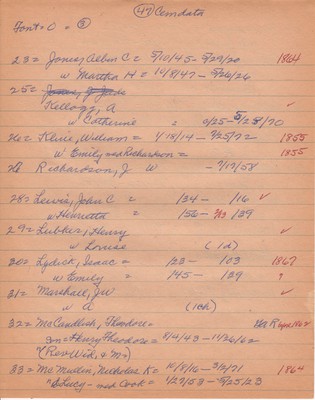 (47) Cemdata
Font = O = (3)
23 = Jones, Albin C = 5/10/45 - 5/29/20 1864
w Martha H = 10/8/47 - 5/26/26
25 =
Kellogg, A ✓
w Catherine = 6/25 - 5/28/70
26 = Kline, William = 4/18/14 - 7/25/72 1855
w Emily nee Richardson = 1855
26 Richardson, J W - 7/19/58
28 = Lewis, John C = 134 - 116 ✓
w Henrietta = 156 - 2/13 139
29 = Lubker, Henry ✓
w Louise (1d)
30 = Lydick, Isaac = 123 - 103 1867
w Emily = 145 - 139 ?
31 = Marshall, JW ✓
w A (1ch)
32 = McCandlish, Theodore =
Son = Henry Theodore = 8/4/43 - 11/26/62
(Rev Wid, & M=)
33 = McMullin, Nicholas K = 10/8/16 - 3/2/71 1864
w Lucy - nee Cook = 4/23/53 - 5/25/23